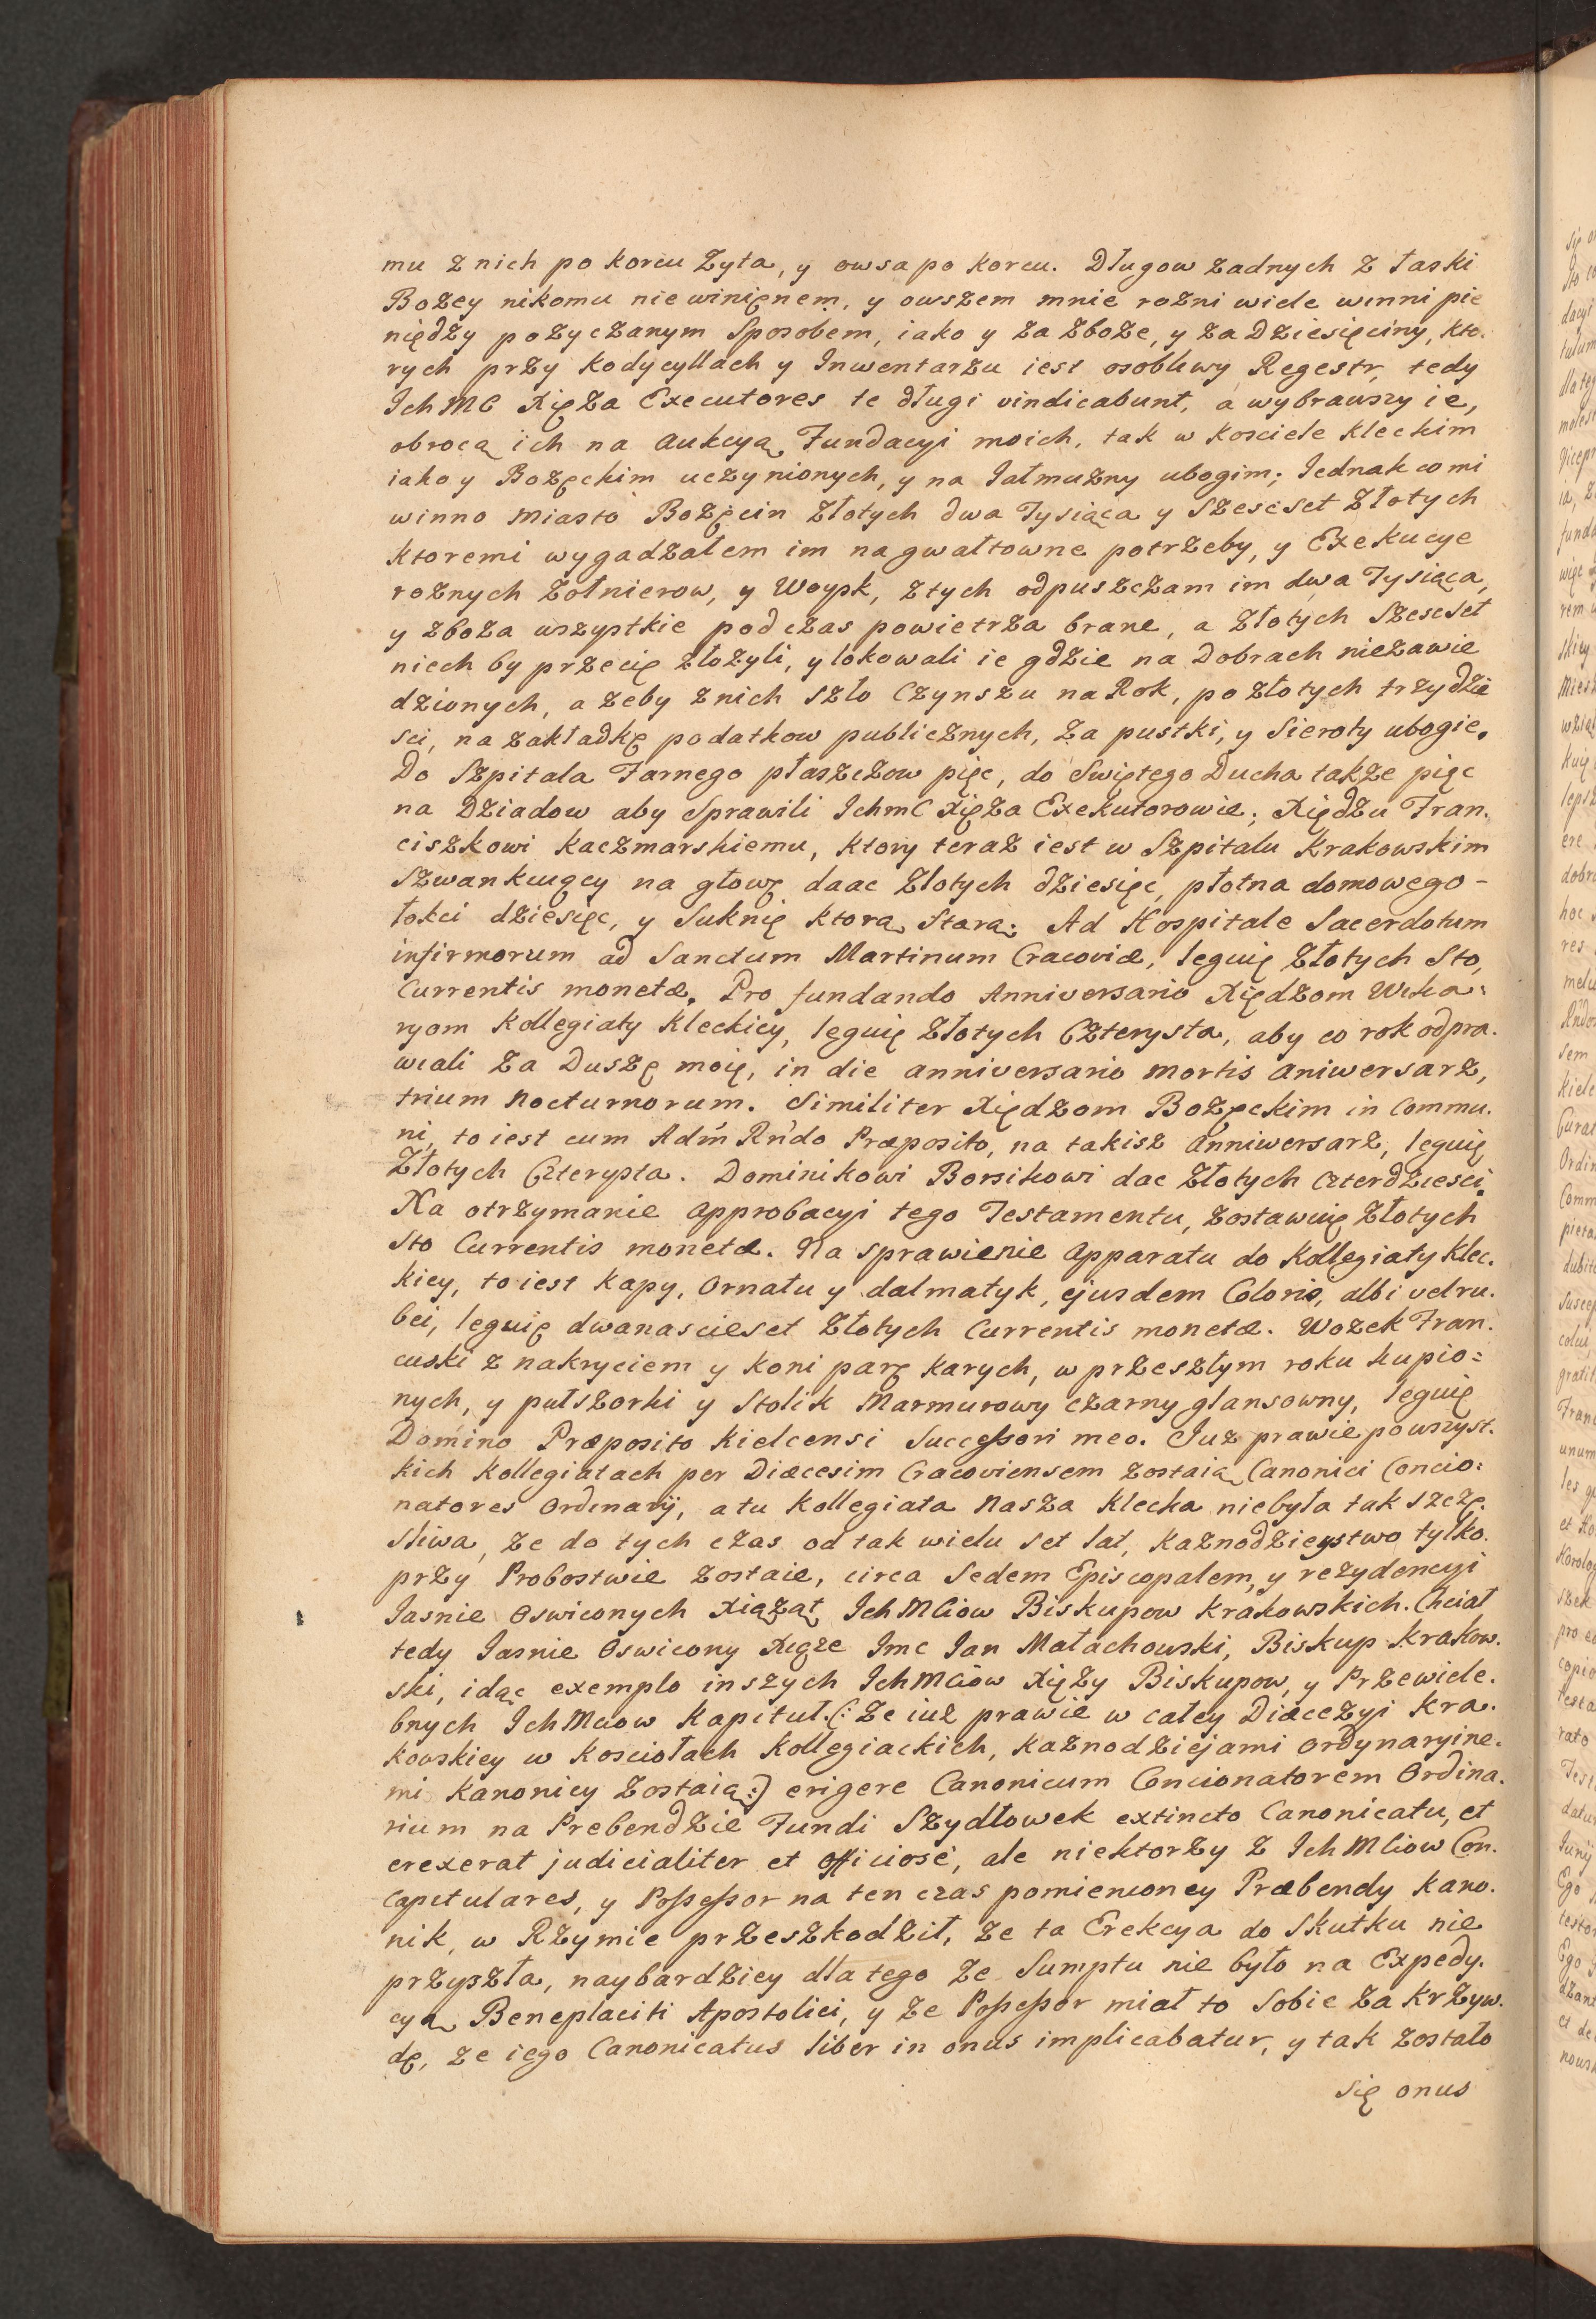 mu z nich po korcu Zyta, y owsa po korcu. Długow zadnych z łaski
Bozey nikomu niewinięnem, y owszem mnie rozni wiele winni pie
niędzy pozyczanym Sposobem, iako y za Zboze, y za Dziesięciny, kto.
rych przy kodycyllach y Inwentarzu iest osobliwy Regestr, tedy
IchMC Xięza Executores te długi vindicabunt, a wybrawszy ie,
obrocą ich na aukcyą Fundacyi moich, tak w kosciele kleckim
iako y Bozęckim uczynionych, y na Jałmuzny ubogim; Jednak co mi
winno Miasto Bozęcin Złotych dwa Tysiąca y Szescset Złotych
ktoremi wygadzałem im na gwałtowne potrzeby, y Exekucye
roznych Zołnierow, y Woysk, z tych odpuszczam im dwa Tysiąca,
y zboza wszystkie podczas powietrza brane, a Złotych Szescset
niech by przecię złozyli, y lokowali ie gdzie na Dobrach niezawie
dzionych, a zeby z nich szło Czynszu na Rok, po złotych trzydzie
sci, na zakładkę podatkow publicznych, za pustki, y Sieroty ubogie.
Do Szpitala Farnego płaszczow pięc, do Swiętego Ducha takze pięc
na Dziadow aby Sprawili IchmC Xięza Exekutorowie; Xiędzu Fran.
ciszkowi kaczmarskiemu, ktory teraz iest w Szpitalu Krakowskim
Szwankuiący na głowę daac Złotych dziesięc, płotna domowego -
łokci dziesięc, y Suknię ktorą Starą; Ad Hospitale Sacerdotum
infirmorum ad Sanctum Martinum Cracoviæ, leguię Złotych Sto,
Currentis monetæ. Pro fundando Anniversario Xiędzom Wika:
ryom Kollegiaty kleckiey, leguię Złotych Czterysta, aby co rok odpra.
wiali za Duszę moię, in die anniversario mortis aniwersarz,
trium Nocturnorum. Similiter Xiędzom Bozęckim in Commu.
ni, to iest cum Adm̃ Rñdo Præposito, na takisz anniwersarz, leguię
Złotych Czterysta. Dominikowi Borsikowi dac Złotych czterdziesci.
Na otrzymanie approbacyi tego Testamentu, zostawuię Złotych
Sto Currentis monetæ. Na sprawienie apparatu do Kollegiaty Klec.
kiey, to iest kapy, Ornatu y dalmatyk, ejusdem Coloris, albi vel ru.
bei, leguię dwanascieset Złotych Currentis monetæ. Wozek Fran.
cuski z nakryciem y koni parę karych, w przeszłym roku kupio=
nych, y pułszorki y Stolik Marmurowy czarny glansowny, leguię
Domino Præposito Kielcensi Successori meo. Juz prawie po wszyst.
kich kollegiatach per Diæcesim Cracoviensem zostaią Canonici Concio:
natores Ordinarij, a tu kollegiata Nasza Klecka niebyła tak szczę.
sliwa, ze do tych czas od tak wielu set lat, kaznodzieystwo tylko.
przy Probostwie zostaie, circa Sedem Episcopalem, y rezydencyi
Jasnie Oswieconych Xiąząt IchMCiow Biskupow krakowskich. Chciał
tedy Jasnie Oswiecony Xiąze Jmc Jan Małachowski, Biskup Krakow.
ski, idąc exemplo inszych IchMciow Xięzy Biskupow, y Przewiele.
bnych IchMciow kapituł. (: ze iuz prawie w całey Diæcezyi kra.
kowskiey w kosciołach kollegiackich, kaznodziejami ordynaryine.
mi kanonicy zostaią :) erigere Canonicum Concionatorem Ordina.
rium na Prebendzie Fundi Szydłowek extincto Canonicatu, et
erexerat judicialiter et officiosè, ale niektorzy z IchMCiow Con.
capitulares, y Possessor na ten czas pomienioney Præbendy kano.
nik, w Rzymie przeszkodził, ze ta Erekcya do Skutku nie
przyszła, naybardziey dla tego ze Sumptu nie było na Expedy.
cyą Beneplaciti Apostolici, y ze Possessor miał to Sobie za krzyw.
dę, ze iego Canonicatus liber in onus implicabatur, y tak zostało
się onus